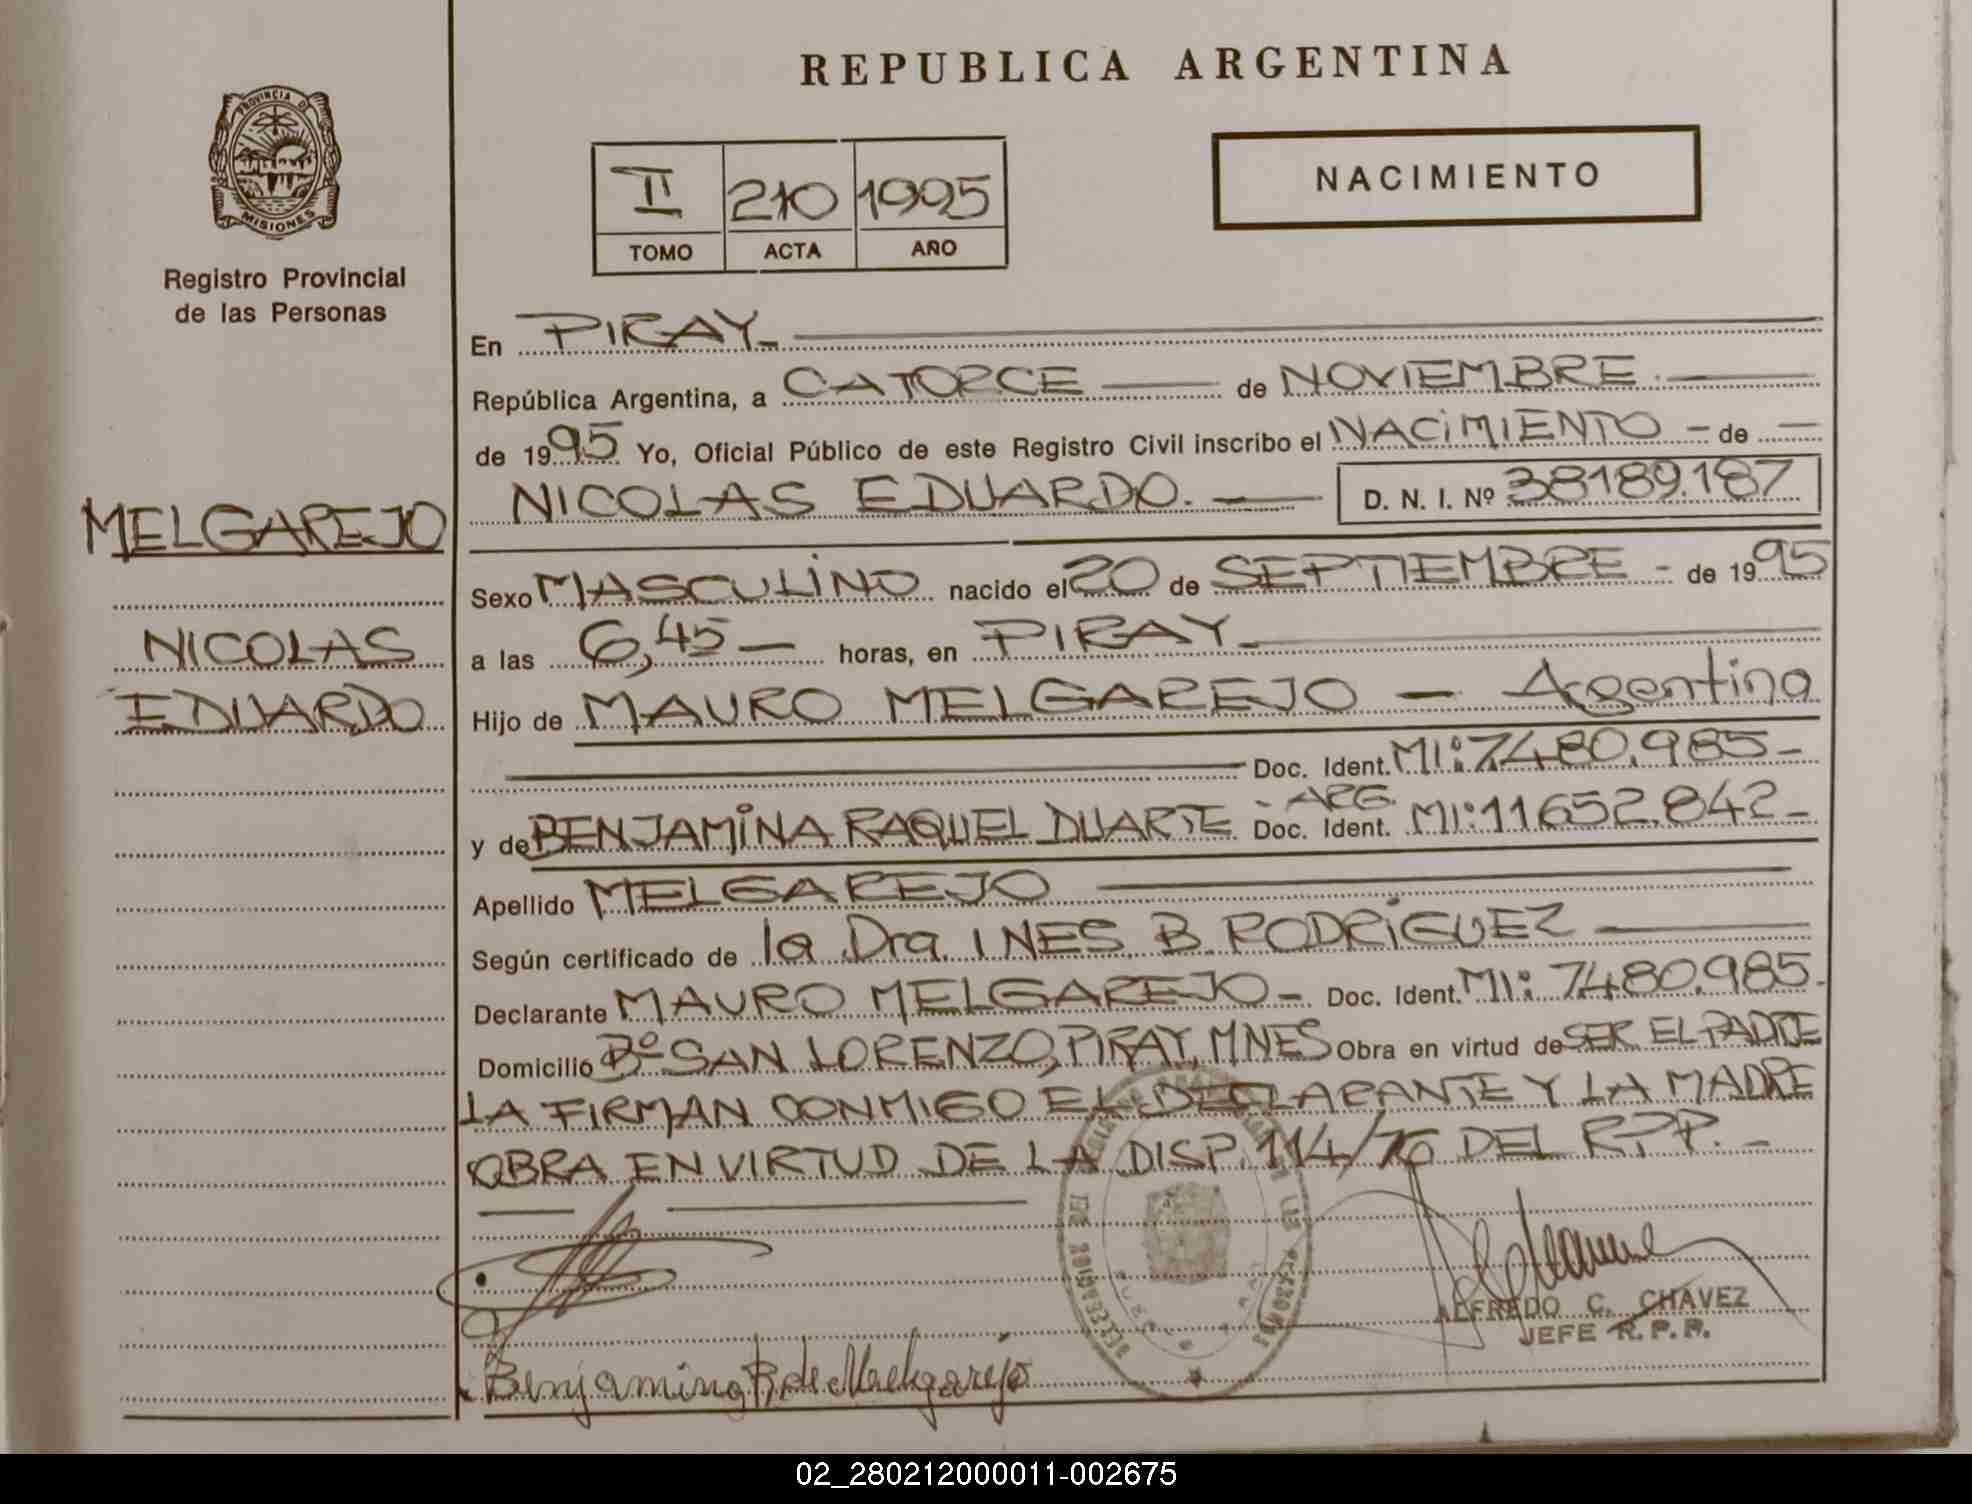 REPUBLICA ARGENTINA
PROVINCIA DE
MISIONES
Registro Provincial
de las Personas
II 210 1995
TOMO ACTA AÑO
NACIMIENTO
En PIRAY
República Argentina, a CATORCE de NOVIEMBRE.
de 1995 Yo, Oficial Público de este Registro Civil inscribo el NACIMIENTO - de -
MELGAREJO
NICOLAS
EDUARDO
NICOLAS EDUARDO. D. N. I. Nº 38189.187
Sexo MASCULINO nacido el 20 de SEPTIEMBRE - de 1995
a las 6,45 - horas, en PIRAY
Hijo de MAURO MELGAREJO - Argentina
Doc. Ident. MI: 7.480.985-
y de BENJAMINA RAQUEL DUARTE - ARG. Doc. Ident. MI: 11652.842-
Apellido MELGAREJO
Según certificado de la Dra. INES. B. RODRIGUEZ
Declarante MAURO MELGAREJO - Doc. Ident. MI: 7.480.985.
Domicilio Bº SAN LORENZO, PIRAY, MNES Obra en virtud de SER EL PADRE
LA FIRMAN CONMIGO EL DECLARANTE Y LA MADRE
OBRA EN VIRTUD DE LA DISP. 114/76 DEL R.P.P. -
ALFREDO C. CHAVEZ
JEFE R.P.P.
Benjamina R. de Melgarejo
02_280212000011-002675